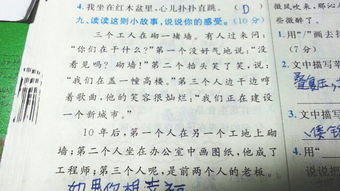 4.我坐在红木盆里,心儿扑扑直跳。 (D)
九、读读这则小故事,说说你的感受。(10分)
三个工人在砌一堵墙。有人过来问:
“你们在干什么?”第一个没好气地说:“没
看见吗?砌墙!”第二个抬头笑了笑,说:
“我们在盖一幢高楼。”第三个人边干边哼
着歌曲,他的笑容很灿烂:“我们正在建设
一个新城市。”
10年后,第一个人在另一个工地上砌
墙;第二个人坐在办公室中画图纸,他成了
工程师;第三个人呢,是前两个人的老板。
如果你想幸福
微风吹来,那沁
些微醉了。
三、用“/”画去括
(7分)
2.文中描写
3.文中描写
4.用“
说说把